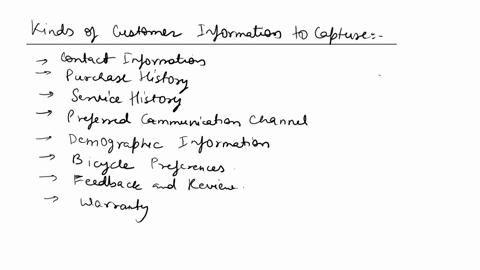 Kinds of Customer Information to Capture:-
→ Contact Information
→ Purchase History
→ Service History
→ Preferred Communication Channel
→ Demographic Information
→ Bicycle Preferences.
→ Feedback and Review.
→ Warranty